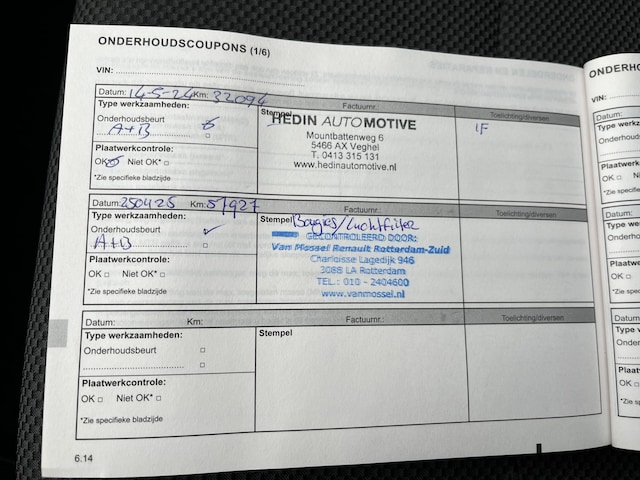 ONDERHOUDSCOUPONS (1/6)
VIN:
Datum: 14-5-24 Km: 32094
Factuurnr.:
Toelichting/diversen
Type werkzaamheden:
Onderhoudsbeurt
A+B
Plaatwerkcontrole:
OK Niet OK*
*Zie specifieke bladzijde
Stempel
HEDIN AUTOMOTIVE
Mountbattenweg 6
5466 AX Veghel
T. 0413 315 131
www.hedinautomotive.nl
1F
Datum: 250425 Km: 57927
Factuurnr.:
Toelichting/diversen
Type werkzaamheden:
Onderhoudsbeurt
A+B
Plaatwerkcontrole:
OK Niet OK*
*Zie specifieke bladzijde
Stempel Bougies/Luchtfilter
GECONTROLEERD DOOR:
Van Mossel Renault Rotterdam-Zuid
Charloisse Lagedijk 946
3088 LA Rotterdam
TEL.: 010 - 2404600
www.vanmossel.nl
Datum: Km:
Factuurnr.:
Toelichting/diversen
Type werkzaamheden:
Onderhoudsbeurt
Plaatwerkcontrole:
OK Niet OK*
*Zie specifieke bladzijde
Stempel
6.14
ONDERHO
VIN:
Datum:
Type werkz
Onderhoud
Plaatwe
OK
*Zie spec
Datum
Type we
Onder
Plaat
OK
*Zie
Datum
Type
Onder
Plaat
OK
*Zie